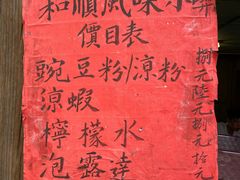 和順風味小
價目表
豌豆粉涼粉
涼蝦
檸檬水
泡露達
捌元陸元捌元拾元